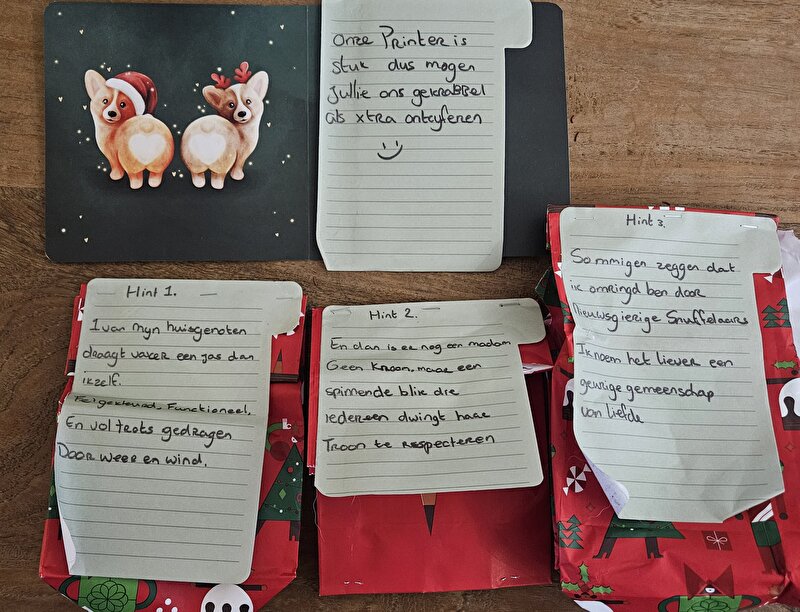 Onze Printer is
stuk dus mogen
jullie ons gekrabbel
als xtra ontcyferen
Hint 1.
1 van mijn huisgenoten
draagt vaker een jas dan
ikzelf.
Functioneel,
En vol trots gedragen
Door weer en wind.
Hint 2.
En dan is er nog een madam
Geen Kroon, maar een
spinnende blik die
iedereen dwingt haar
Troon te respecteren
Hint 3.
Sommigen zeggen dat
ik omringd ben door
Nieuwsgierige Snuffelaars
Ik noem het liever een
geurige gemeenschap
van liefde